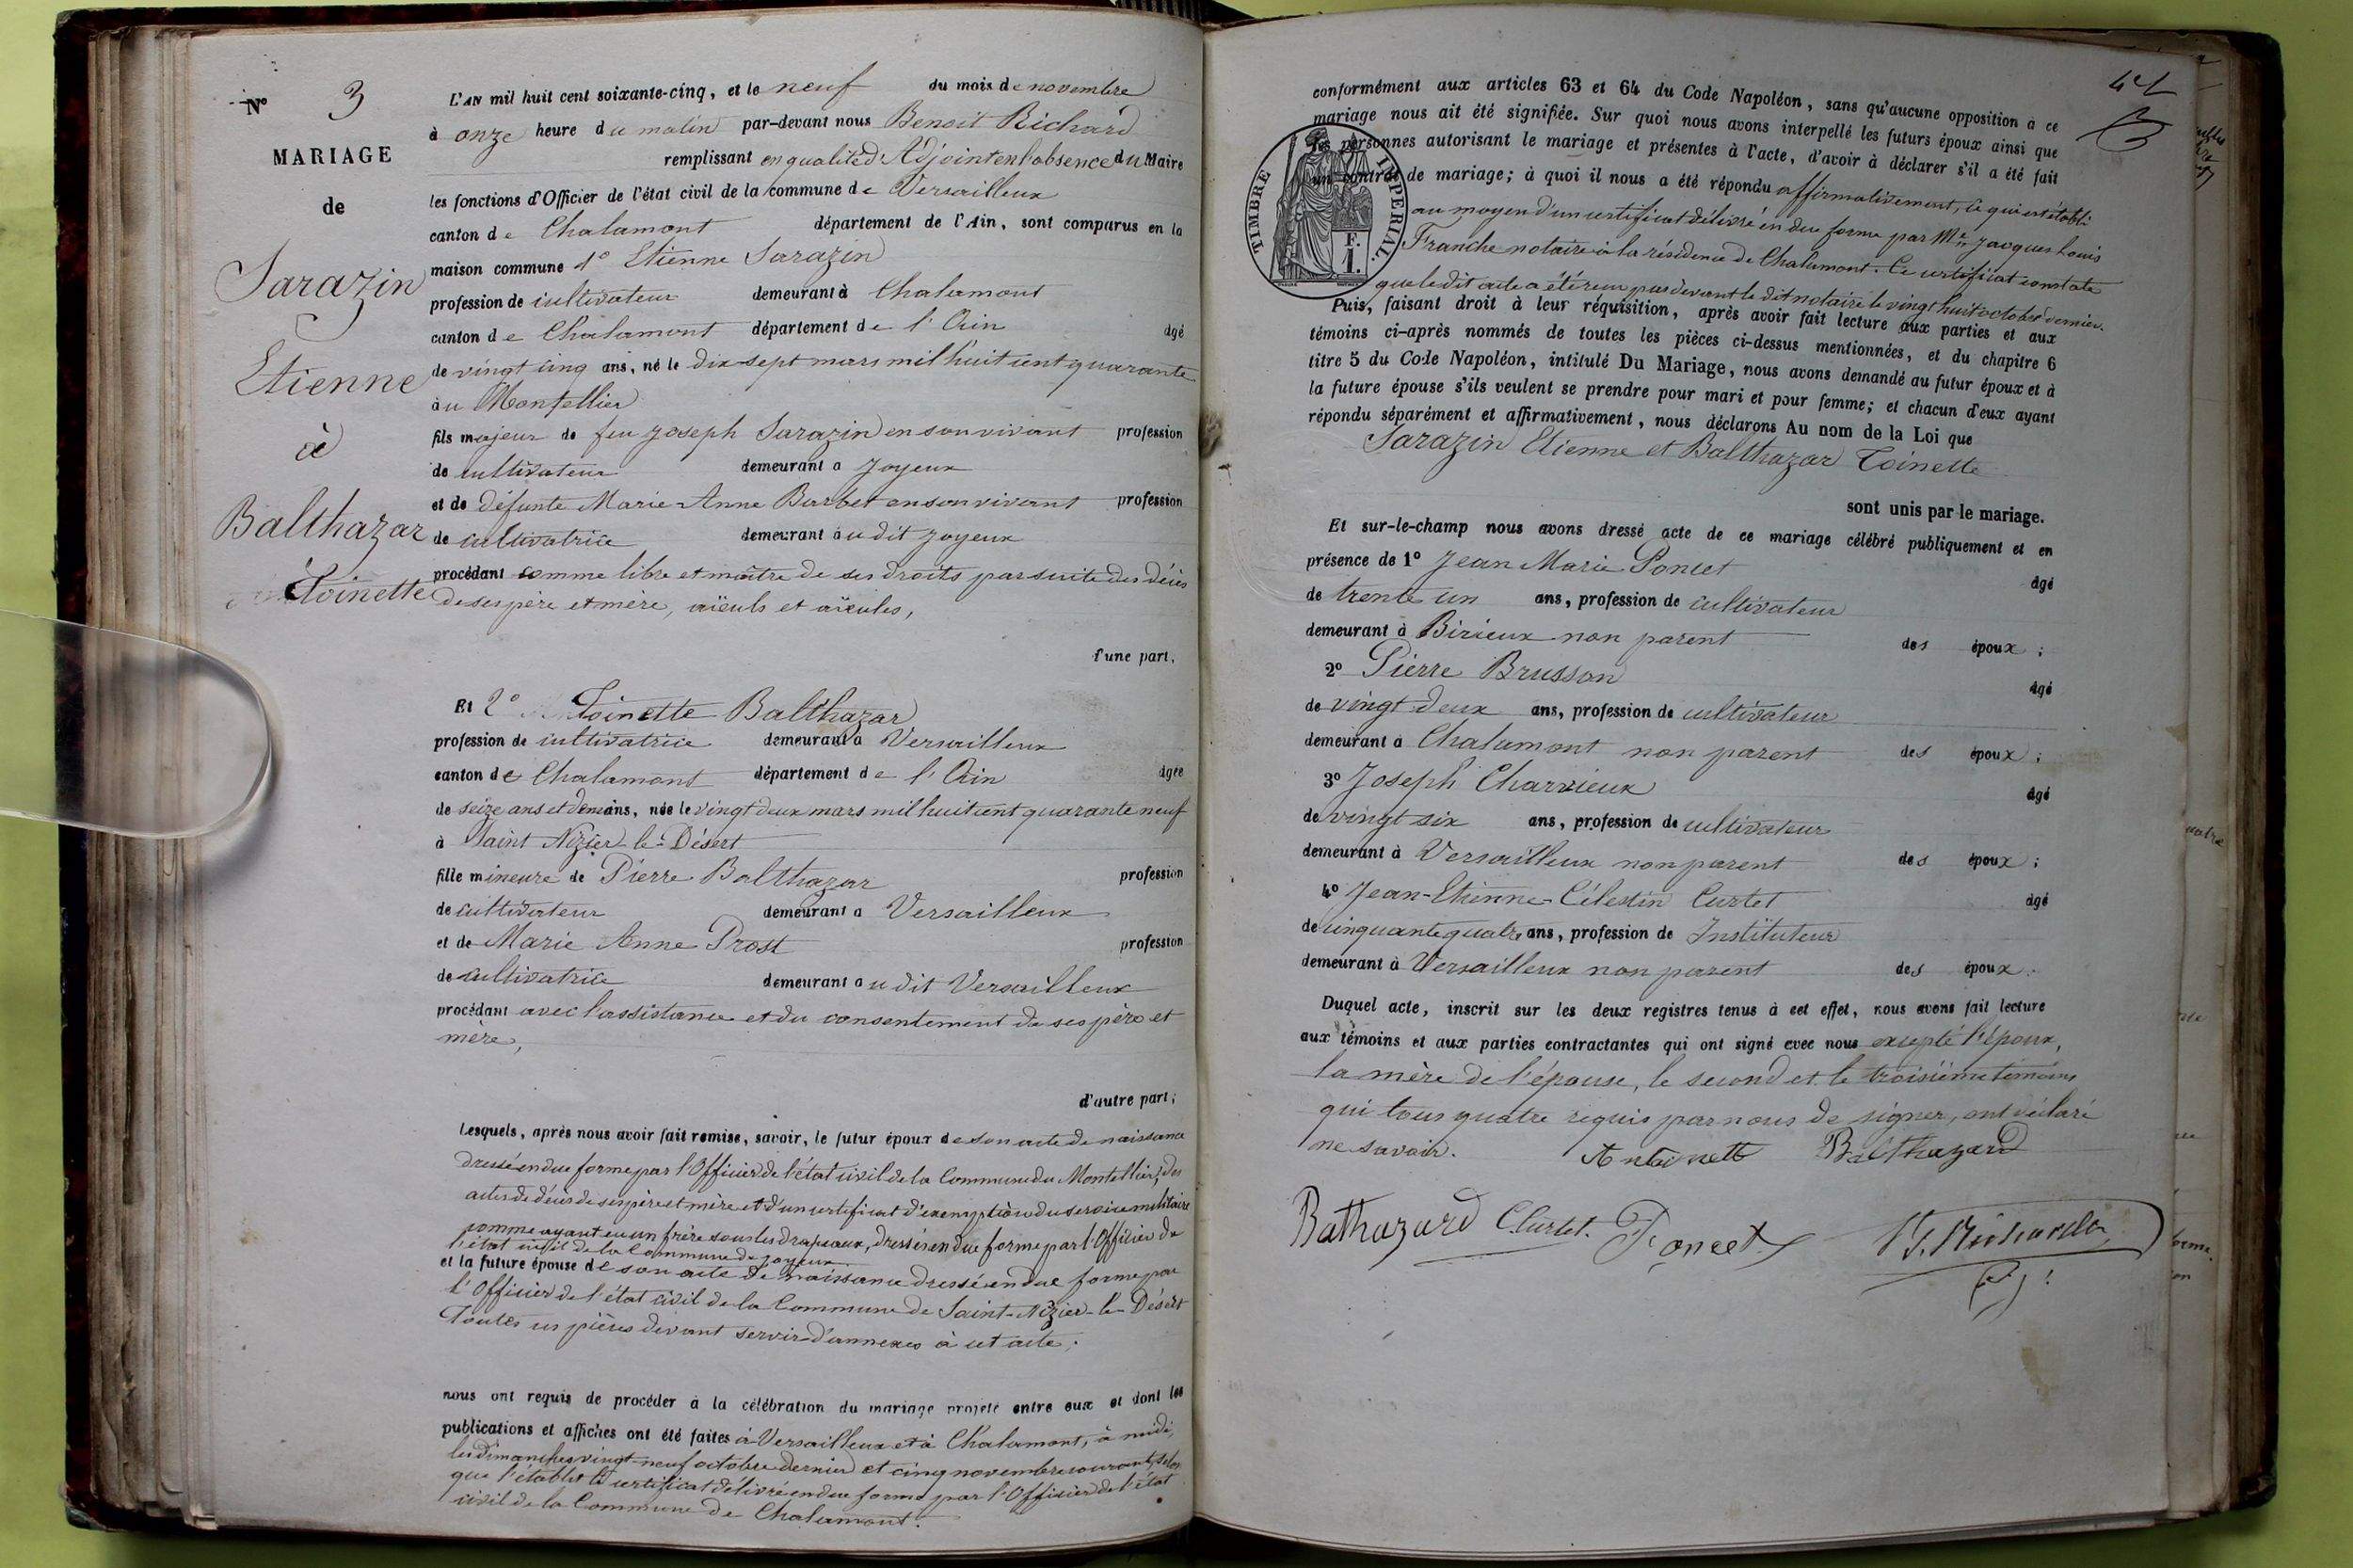 N° 3
MARIAGE
de
Sarazin
Etienne
à
Balthazar
Toinette
L'AN mil huit cent soixante-cinq, et le neuf du mois de novembre
à onze heure du matin par-devant nous Benoit Richard
remplissant en qualité d'Adjoint en l'absence du Maire
les fonctions d'Officier de l'état civil de la commune de Versailleux
canton de Chalamont département de l'Ain, sont comparus en la
maison commune 1° Etienne Sarazin
profession de cultivateur demeurant à Chalamont
canton de Chalamont département de l'Ain âgé
de vingt cinq ans, né le dix-sept mars mil huit cent quarante
au Montellier
fils majeur de feu Joseph Sarazin en son vivant profession
de cultivateur demeurant à Joyeux
et de défunte Marie-Anne Barbet en son vivant profession
de cultivatrice demeurant audit Joyeux
procédant comme libre et maître de ses droits par suite des décès
de ses père et mère, aïeuls et aïeules,
d'une part,
Et 2° Toinette Balthazar
profession de cultivatrice demeurant à Versailleux
canton de Chalamont département de l'Ain âgée
de seize ans et demi ans, née le vingt deux mars mil huit cent quarante neuf
à Saint Nizier-le-Désert
fille mineure de Pierre Balthazar profession
de cultivateur demeurant à Versailleux
et de Marie Anne Prost profession
de cultivatrice demeurant audit Versailleux
procédant avec l'assistance et du consentement de ses père et
mère,
d'autre part;
Lesquels, après nous avoir fait remise, savoir, le futur époux de son acte de naissance
dressé en due forme par l'Officier de l'état civil de la Commune du Montellier, des
actes de décès de ses père et mère et d'un certificat d'exemption du service militaire
comme ayant eu un frère sous les drapeaux, dressés en due forme par l'Officier de
l'état civil de la Commune de Joyeux
et la future épouse de son acte de naissance dressé en due forme par
l'Officier de l'état civil de la Commune de Saint-Nizier-le-Désert
Toutes ces pièces devant servir d'annexes à cet acte;
nous ont requis de procéder à la célébration du mariage projeté entre eux et dont les
publications et affiches ont été faites à Versailleux et à Chalamont, à midi,
les dimanches vingt-neuf octobre dernier et cinq novembre courant, selon
que l'établit le certificat délivré en due forme par l'Officier de l'état
civil de la Commune de Chalamont.
conformément aux articles 63 et 64 du Code Napoléon, sans qu'aucune opposition à ce
mariage nous ait été signifiée. Sur quoi nous avons interpellé les futurs époux ainsi que
les personnes autorisant le mariage et présentes à l'acte, d'avoir à déclarer s'il a été fait
un contrat de mariage; à quoi il nous a été répondu affirmativement, ce qui est établi
au moyen d'un certificat délivré en due forme par Me Jacques Louis
Franche notaire à la résidence de Chalamont. Ce certificat constate
que le dit acte a été reçu par devant le dit notaire le vingt huit octobre dernier.
TIMBRE IMPERIAL
Puis, faisant droit à leur réquisition, après avoir fait lecture aux parties et aux
témoins ci-après nommés de toutes les pièces ci-dessus mentionnées, et du chapitre 6
titre 5 du Code Napoléon, intitulé Du Mariage, nous avons demandé au futur époux et à
la future épouse s'ils veulent se prendre pour mari et pour femme; et chacun d'eux ayant
répondu séparément et affirmativement, nous déclarons Au nom de la Loi que
Sarazin Etienne et Balthazar Toinette
sont unis par le mariage.
Et sur-le-champ nous avons dressé acte de ce mariage célébré publiquement et en
présence de 1° Jean Marie Poncet âgé
de trente un ans, profession de cultivateur
demeurant à Birieux non parent des époux;
2° Pierre Brusson âgé
de vingt deux ans, profession de cultivateur
demeurant à Chalamont non parent des époux;
3° Joseph Charvieux âgé
de vingt six ans, profession de cultivateur
demeurant à Versailleux non parent des époux;
4° Jean-Etienne-Célestin Curtet âgé
de cinquante quatre ans, profession de Instituteur
demeurant à Versailleux non parent des époux.
Duquel acte, inscrit sur les deux registres tenus à cet effet, nous avons fait lecture
aux témoins et aux parties contractantes qui ont signé avec nous excepté l'époux,
la mère de l'épouse, le second et le troisième témoins
qui tous quatre requis par nous de signer, ont déclaré
ne savoir. Antoinette Balthazard
Bathazard C. Curtet. Poncet